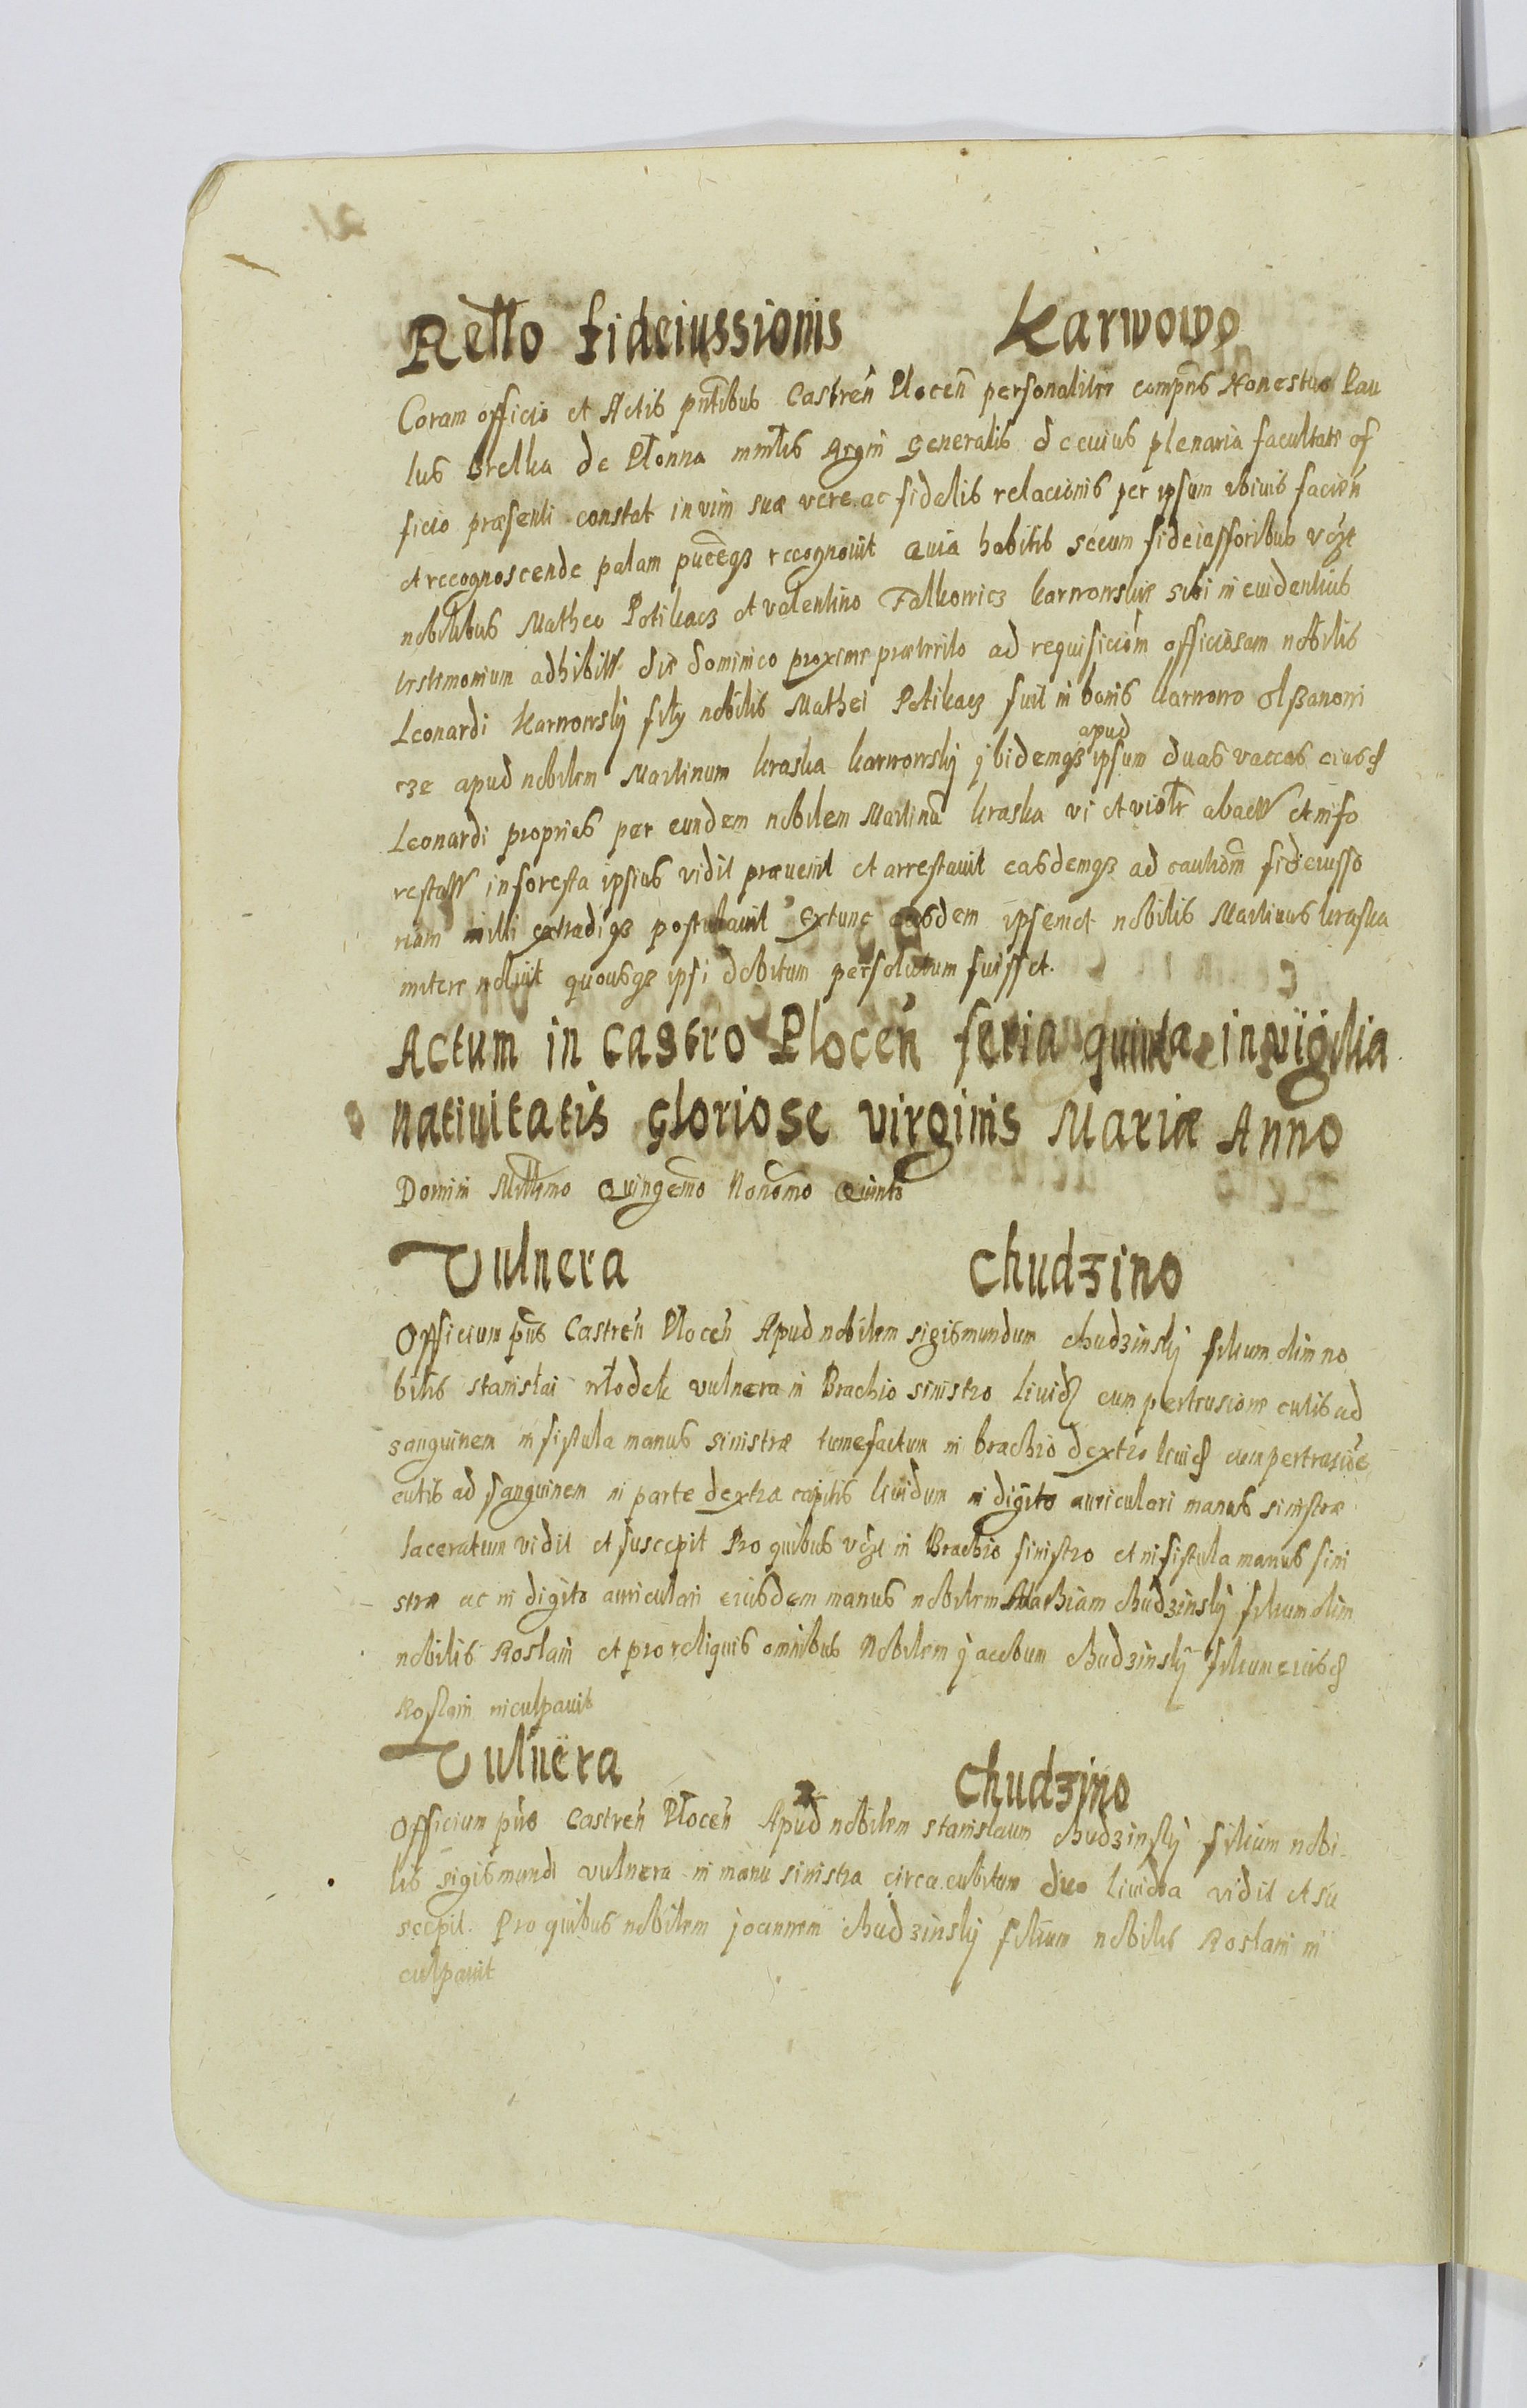 Rello fideiussionis Karwowo
Coram officio et Actis pntibus Castren Plocen personaliter compns Honestus Pau
lus Orelka de Plonna mnlis Regni Generalis de cuius plenaria facultate of
ficio præsenti constat in vim suæ vere ac fidelis relacionis per ipsum vbiuis facien
et recognoscende palam puceqz recognouit Quia habitis secum fideiussoribus vczt
nobilibus Matheo Potikacz et valentino Falkowicz karwowskie sibi in euidentius
testimonium adhibitt die dominico proxime præterito ad requisiciom officiosam nobilis
Leonardi Karwowskij filij nobilis Mathei Potikacz fuit in bonis karwowo olszanowi
cze apud nobilem Martinum kraska karwowskij jbidemqz apud ipsum duas vaccas eiusd
Leonardi proprias per eundem nobilem Martinu kraska vi et violtr abactt et info
restatt in foresta ipsius vidit præuenit et arrestauit easdemqz ad cautiom fideiusso
riam illi extradiqz postulauit Extunc easdem ipsemet nobilis Martinus kraska
mitere noluit quousqz ipsi debitum persolutum fuisset.
Actum in Castro Plocen feria quinta in vigilia
natiuitatis gloriose virginis Mariæ Anno
Domini Millimo Quingemo Nonomo Quinto
Vulnera Chudzino
Officium pns Castren Plocen Apud nobilem sigismundum chudzinskij filium olim no
bilis stanislai wlodek vulnera in Brachio sinistro liuid cum pertrusione cutis ad
sanguinem in fistula manus sinistræ tumefactum in brachio dextro liuid cum pertrusioe
cutis ad sanguinem in parte dextra capitis liuidum in digito auriculari manus sinistræ
laceratum vidit et suscepit Pro quibus vczt in Brachio sinistro et in fistula manus sini
stræ ac in digito auriculari eiusdem manus nobilem Mathiam Chudzinskij filium olim
nobilis Roslani et pro reliquis omnibus Nobilem jacobum chudzinskij filium eiusd
Roslani inculpauit
Vulnera Chudzino
Officium pns Castren Plocen Apud nobilem stanislaum chudzinskij filium nobi
lis sigismundi vulnera in manu sinistra circa cubitum duo liuida vidit et su
scepit. Pro quibus nobilem joannem chudzinskij filium nobilis Roslani in
culpauit